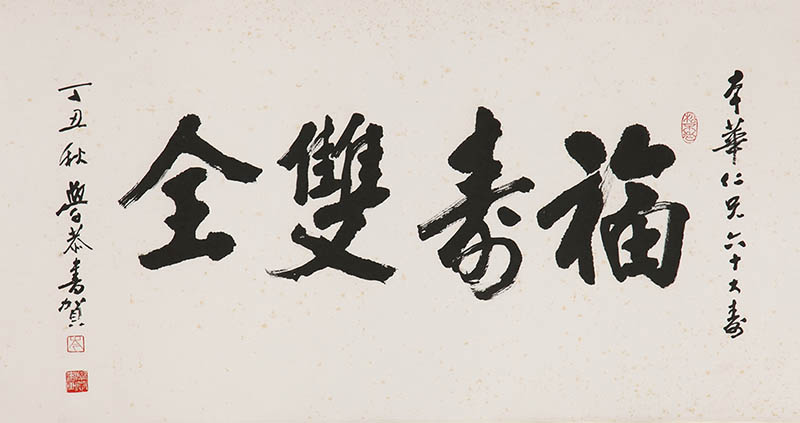 本華仁兄六十大壽
福寿雙全
丁丑秋學恭書賀